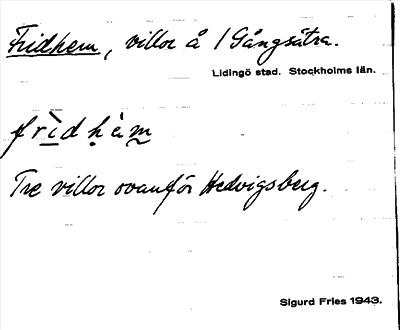 Fridhem, villor å 1 Gångsätra.
Lidingö stad. Stockholms län.
frìdhèm
Tre villor ovanför Hedvigsberg.
Sigurd Fries 1943.